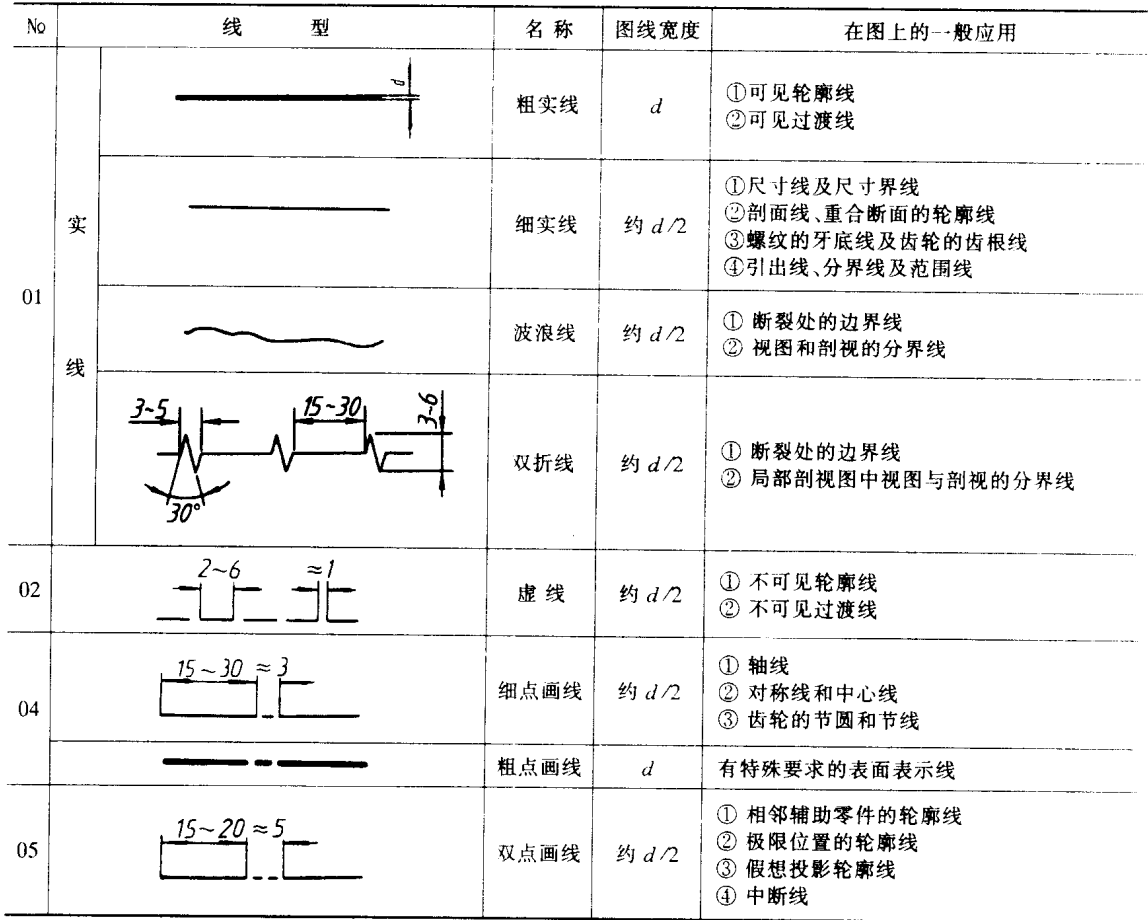 No 线 型 名 称 图线宽度 在图上的一般应用
01
实
线
d
粗实线 d
①可见轮廓线
②可见过渡线
细实线 约 d/2
①尺寸线及尺寸界线
②剖面线、重合断面的轮廓线
③螺纹的牙底线及齿轮的齿根线
④引出线、分界线及范围线
波浪线 约 d/2
① 断裂处的边界线
② 视图和剖视的分界线
3~5 15~30 3~6
30°
双折线 约 d/2
① 断裂处的边界线
② 局部剖视图中视图与剖视的分界线
02
2~6 ≈1
虚 线 约 d/2
① 不可见轮廓线
② 不可见过渡线
04
15~30 ≈3
细点画线 约 d/2
① 轴线
② 对称线和中心线
③ 齿轮的节圆和节线
粗点画线 d 有特殊要求的表面表示线
05
15~20 ≈5
双点画线 约 d/2
① 相邻辅助零件的轮廓线
② 极限位置的轮廓线
③ 假想投影轮廓线
④ 中断线